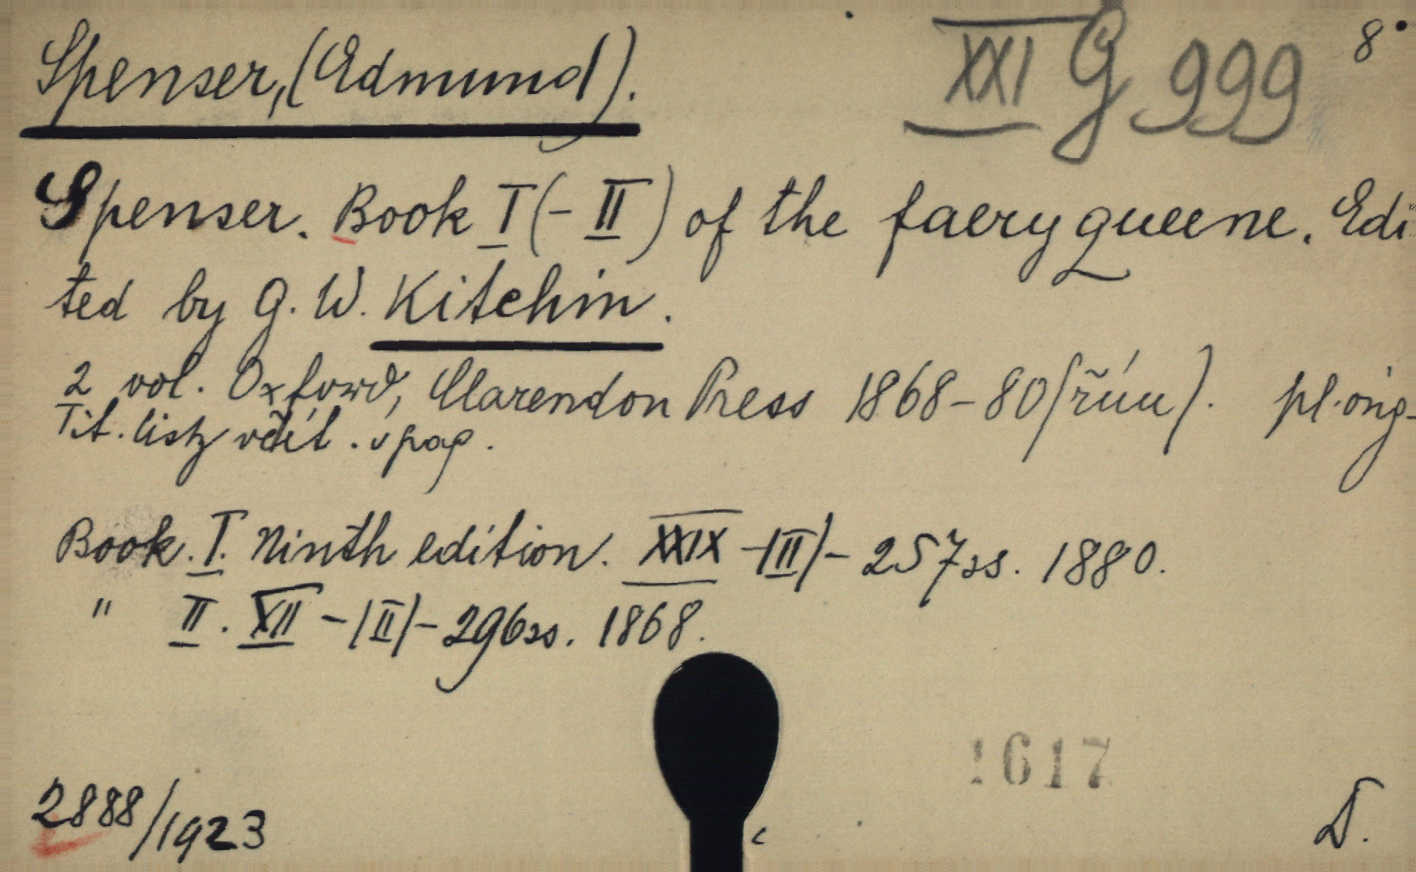 Spenser, (Edmund).
XXI G 999
8°
Spenser. Book I (- II) of the faery queene. Edi-
ted by G. W. Kitchin.
2 vol. Oxford, Clarendon Press 1868-80 (řím). pl. orig.
Tit. listy včít. v pag.
Book. I. Ninth edition. XXIX -(II)- 257 ss. 1880.
" II. XII -(II)- 296 ss. 1868.
1617
2888/1923